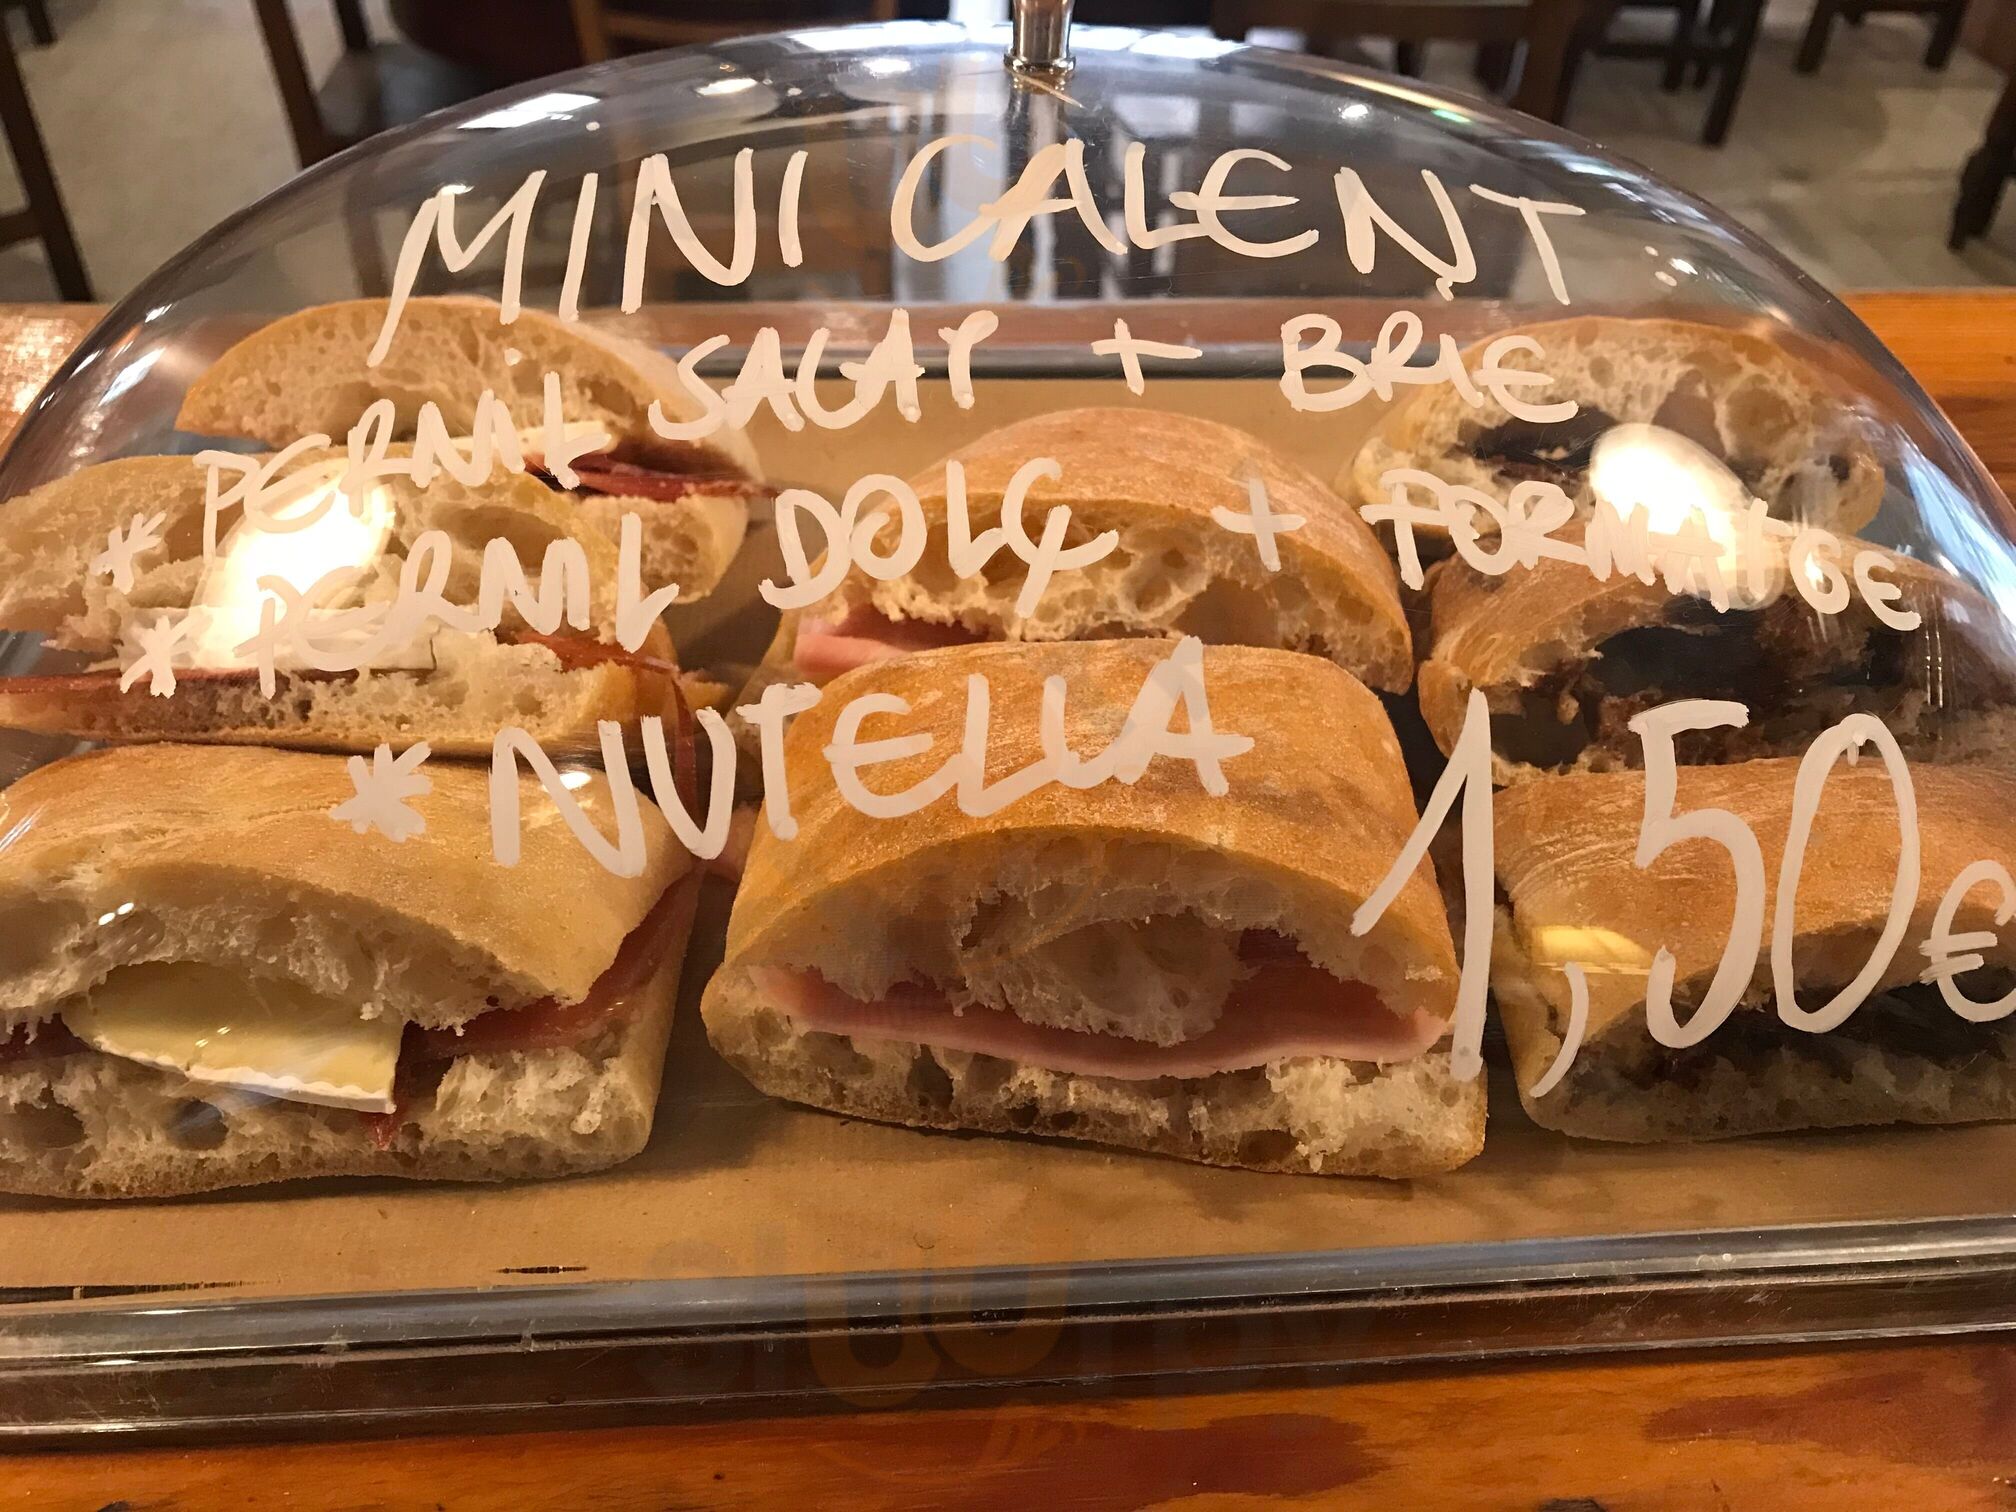 MINI CALENT:
* PERNIL SALAT + BRIE
* PERNIL DOLÇ + FORMATGE
* NUTELLA
1,50€